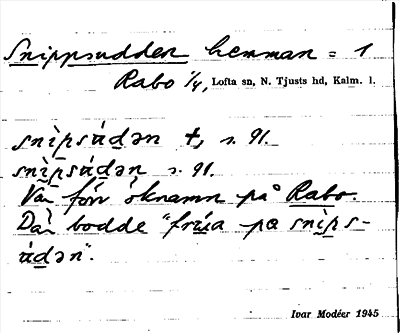 Snippsudden hemman = 1
Rabo 1/4, Lofta sn, N. Tjusts hd, Kalm. l.
snìpsúdən †, s. 91.
snìpsúdən s. 91.
Var förr öknamn på Rabo.
Där bodde "frúa på snìps-
údən".
Ivar Modéer 1945